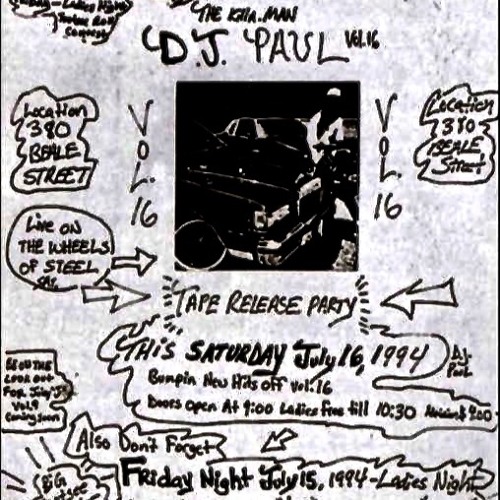 Ladies Night
THE Killa-MAN
D.J. PAUL Vol.16
Location
380
BEALE
STREET
VOL. 16
VOL. 16
Location
380
BEALE
STREET
Live ON
THE WHEELS
OF STEEL
TAPE RELEASE PARTY
THIS SATURDAY July 16, 1994
D.J.
Paul
Bumpin New Hits off vol.16
Doors open At 9:00 Ladies Free till 10:30
BE ON THE
LOOK OUT
FOR
Vol.9
Coming Soon
Also Don't Forget
Friday Night July 15, 1994-Ladies Night
BIG